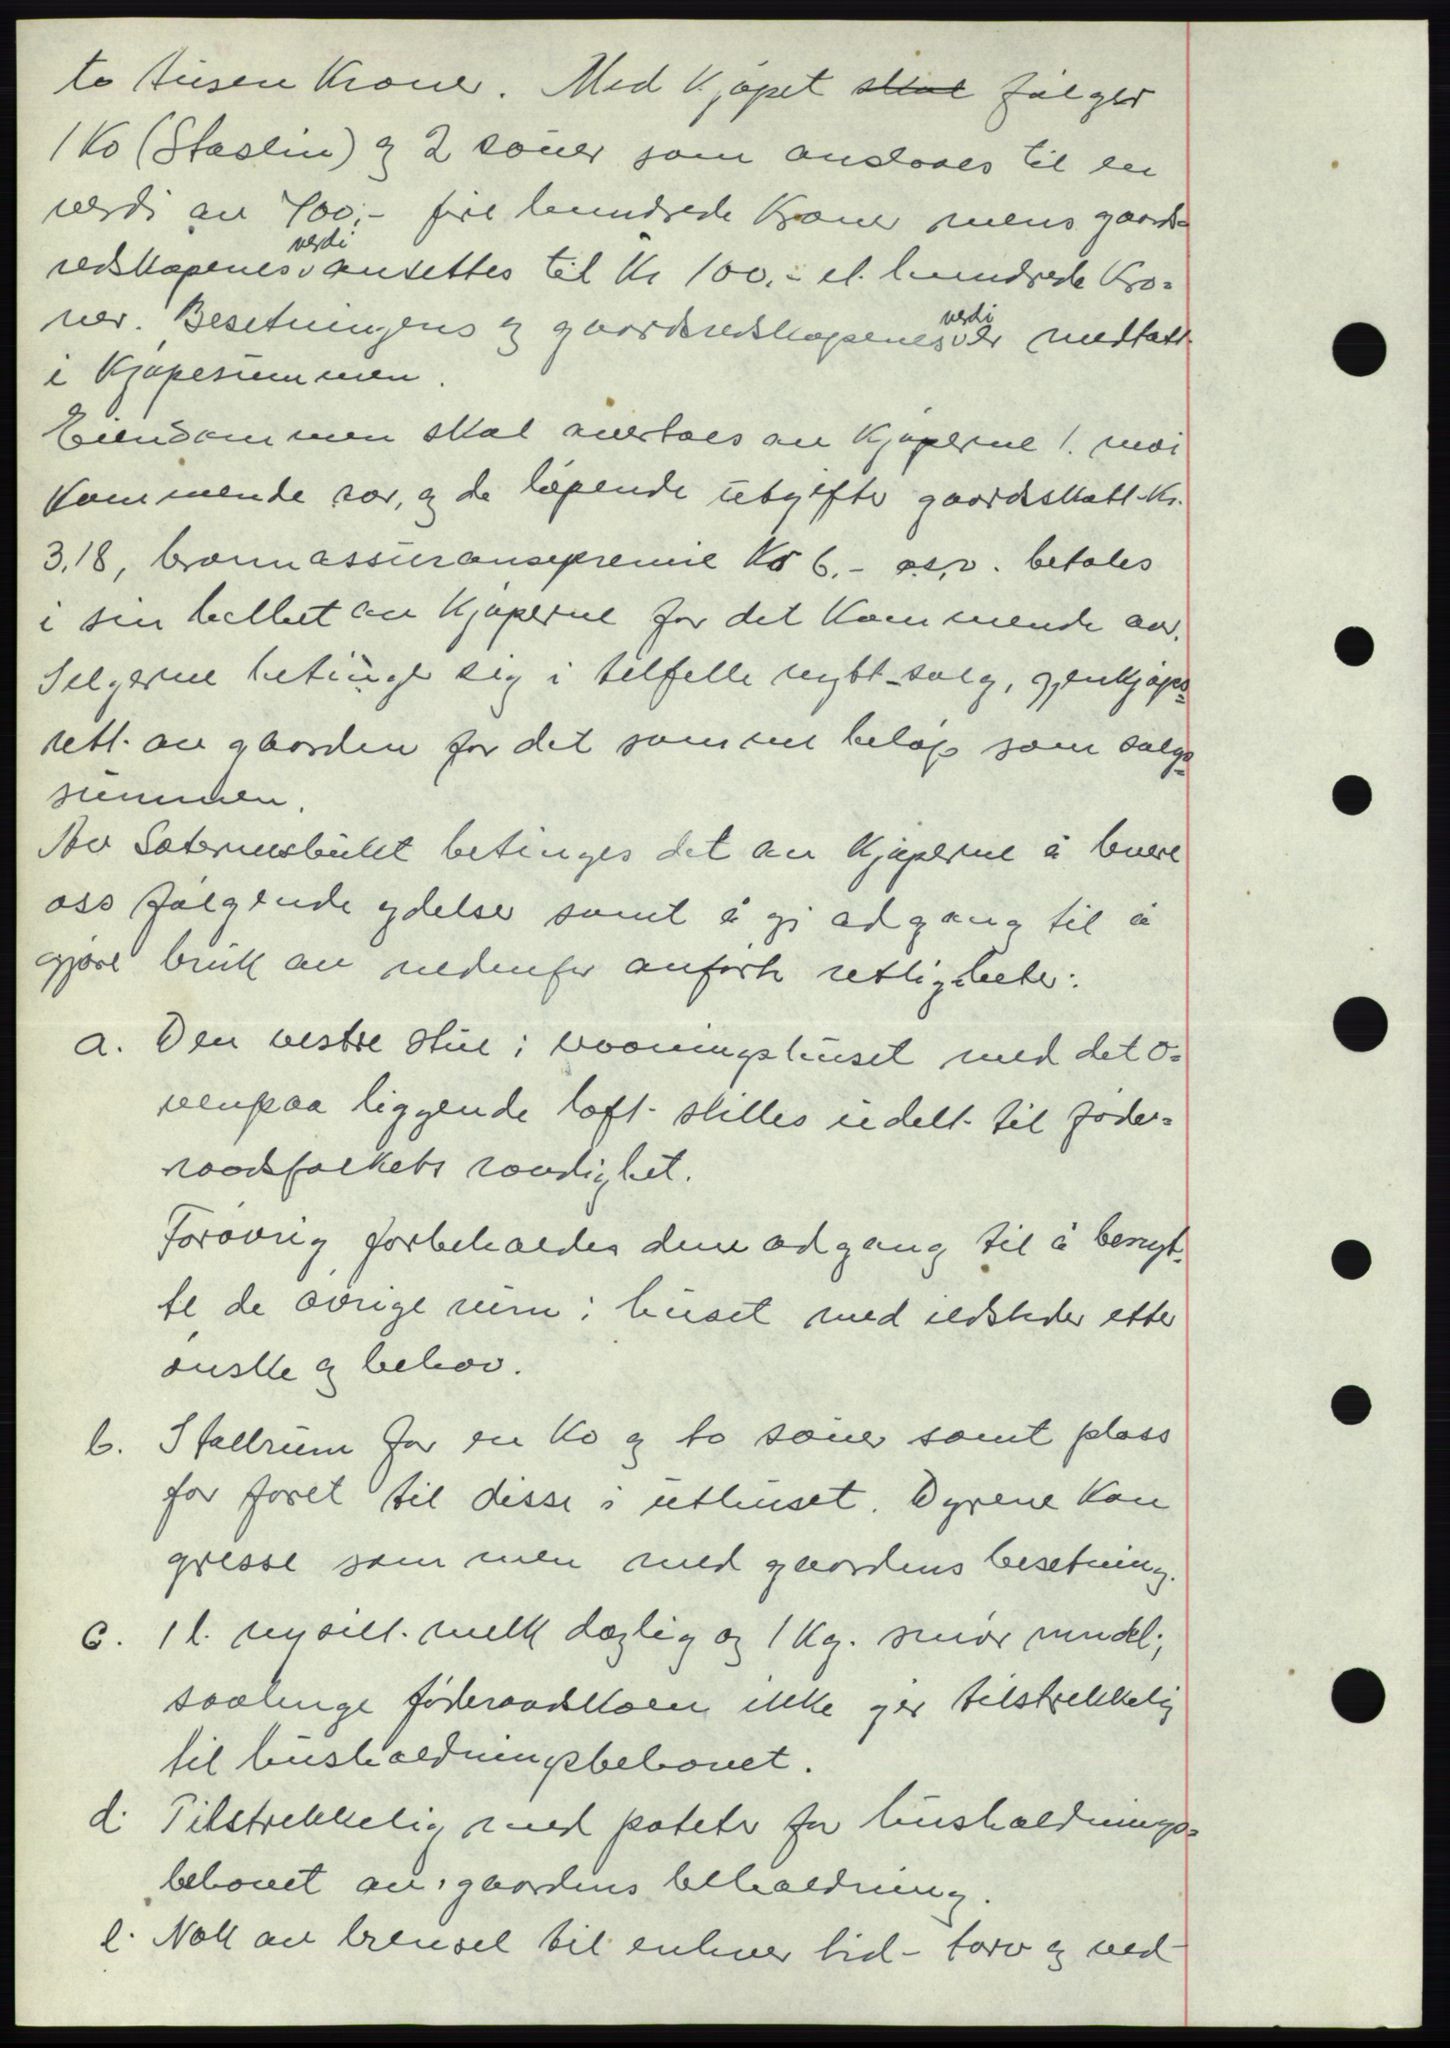 to tusen kroner. Med kjøpet ~~skal~~ følger
1 ko (Staslin) og 2 sauer som anslaaes til en
verdi av 400,- fire hundrede kroner mens gaards=
redskapenes verdi ansettes til kr 100.- et hundrede kro=
ner. Besetningens og gaardsredskapenes verdi er medtatt
i kjøpesummen.
Eiendommen skal overtaes av kjøperne 1. mai
kommende aar, og de løpende utgifter gaardskatt kr.
3.18, brannassuransepremie kr 6.- o.s.v. betales
i sin helhet av kjøperne for det kommende aar.
Selgerne betinger sig i tilfelle nytt salg, gjenkjøps=
rett av gaarden for det samme beløp som salgs=
summen.
Av bruket betinges det av kjøperne å levere
oss følgende ydelser samt å gi adgang til å
gjøre bruk av nedenfor anførte rettigheter:
a. Den vestre stue i vaaningshuset med det o=
venpaa liggende loft stilles udelt til føde=
raadsfolkets raadighet.
Forøvrig forbeholdes dem adgang til å benyt=
te de øvrige rum i huset med ildsteder etter
ønske og behov.
b. Stallrum for en ko og to sauer samt plass
for foret til disse i uthuset. Dyrene kan
gresse sammen med gaardens besetning.
c. 1 l. nysilt melk daglig og 1 kg. smør mndl.,
saalenge føderaadskoen ikke gir tilstrekkelig
til husholdningsbehovet.
d. Tilstrekkelig med poteter for husholdnings=
behovet av gaardens beholdning.
e. Nok av brensel til enhver tid - torv og ved